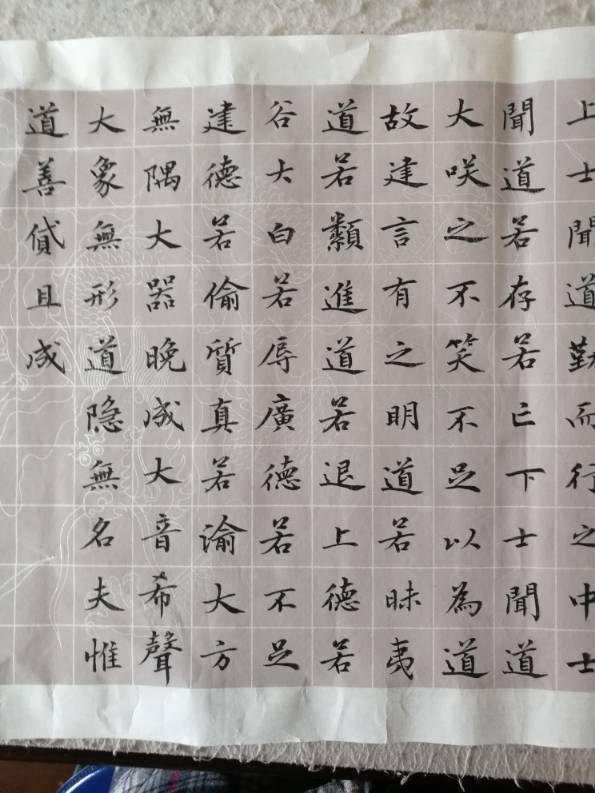 上士聞道勤而行之中士
聞道若存若亡下士聞道
大咲之不笑不足以為道
故建言有之明道若昧夷
道若纇進道若退上德若
谷大白若辱廣德若不足
建德若偷質真若渝大方
無隅大器晚成大音希聲
大象無形道隐無名夫惟
道善貸且成